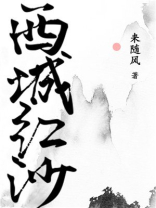 西城红沙
来随风
著